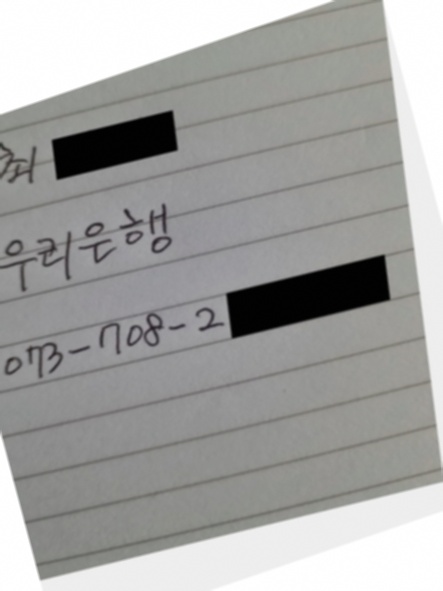 최
우리은행
073-708-2